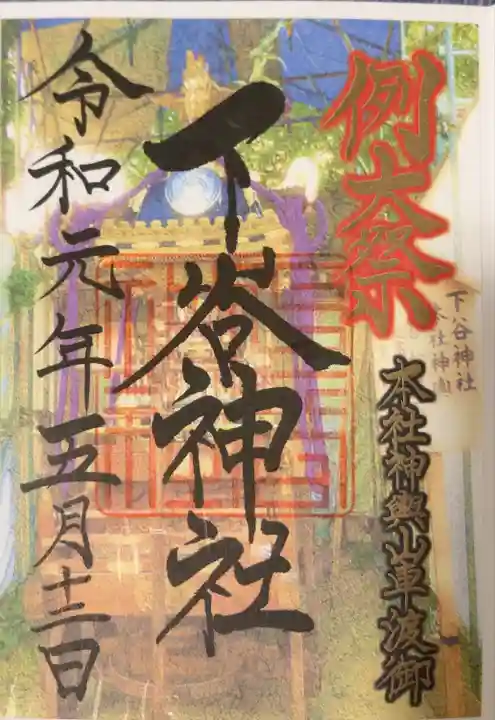 例大祭
下谷神社
本社神輿
本社神輿山車渡御
下谷神社
令和元年五月十二日